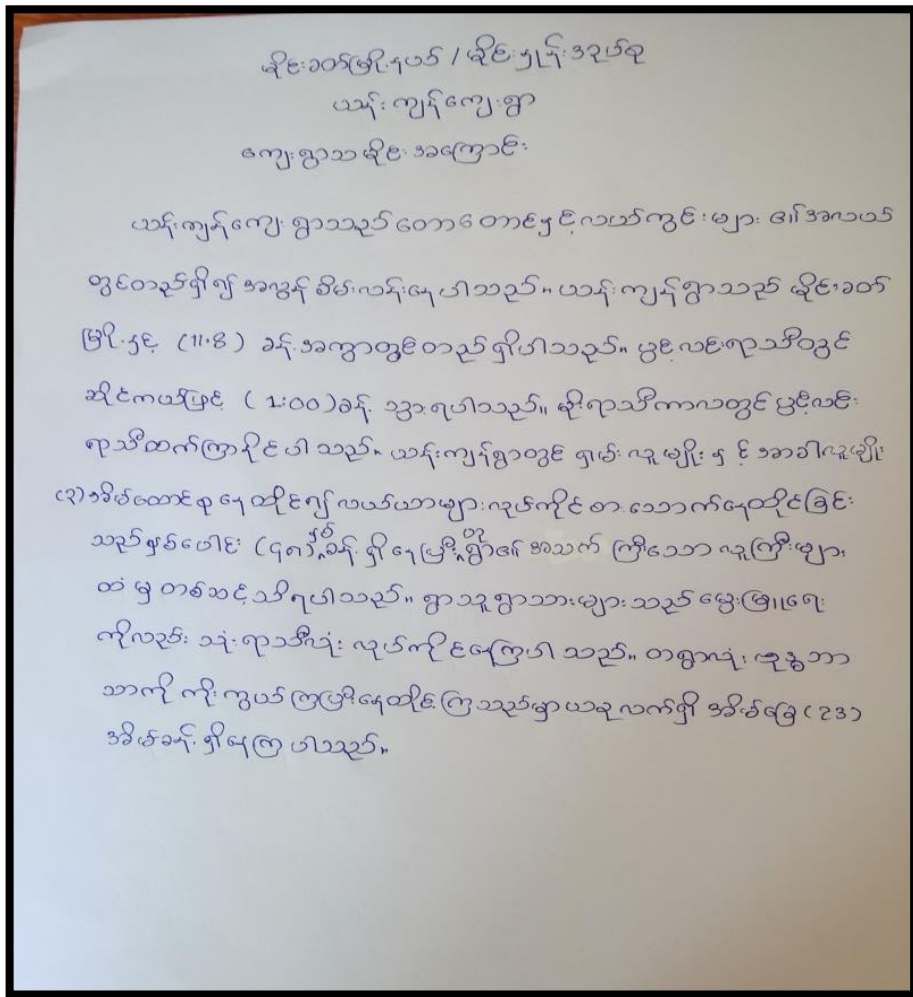 မိုင်းခတ်မြို့နယ် / မိုင်းဟွန်းအုပ်စု
ယန်းကျန်ကျေးရွာ
ကျေးရွာသမိုင်းအကြောင်း
ယန်းကျန်ကျေးရွာသည် တောတောင်နှင့်လယ်ကွင်းများ ၏အလယ်
တွင်တည်ရှိ၍ အလွန်စိမ်းလန်းနေပါသည်။ ယန်းကျန်ရွာသည် မိုင်းခတ်
မြို့နှင့် (11.8) ခန့်အကွာတွင်တည်ရှိပါသည်။ ပွင့်လင်းရာသီတွင်
ဆိုင်ကယ်ဖြင့် (1:00)ခန့် သွားရပါသည်။ မိုးရာသီကာလတွင် ပွင့်လင်း
ရာသီထက်ကြာနိုင်ပါသည်။ ယန်းကျန်ရွာတွင် ရှမ်းလူမျိုးနှင့်အာခါလူမျိုး
(၃)အိမ်ထောင်စုနေထိုင်၍ လယ်ယာများလုပ်ကိုင်စားသောက်နေထိုင်ခြင်း
သည်နှစ်ပေါင်း (၄၈)နှစ်ခန့်ရှိနေပြီဟုရွာ၏ အသက်ကြီးသော လူကြီးများ
ထံမှ တစ်ဆင့်သိရပါသည်။ ရွာသူရွာသားများသည် မွေးမြူရေး
ကိုလည်း သုံးရာသီလုံး လုပ်ကိုင်နေကြပါသည်။ တရွာလုံး ဗုဒ္ဓဘာ
သာကို ကိုးကွယ်ကြပြီးနေထိုင်ကြသည်မှာယခုလက်ရှိ အိမ်ခြေ(23)
အိမ်ခန့်ရှိနေကြပါသည်။